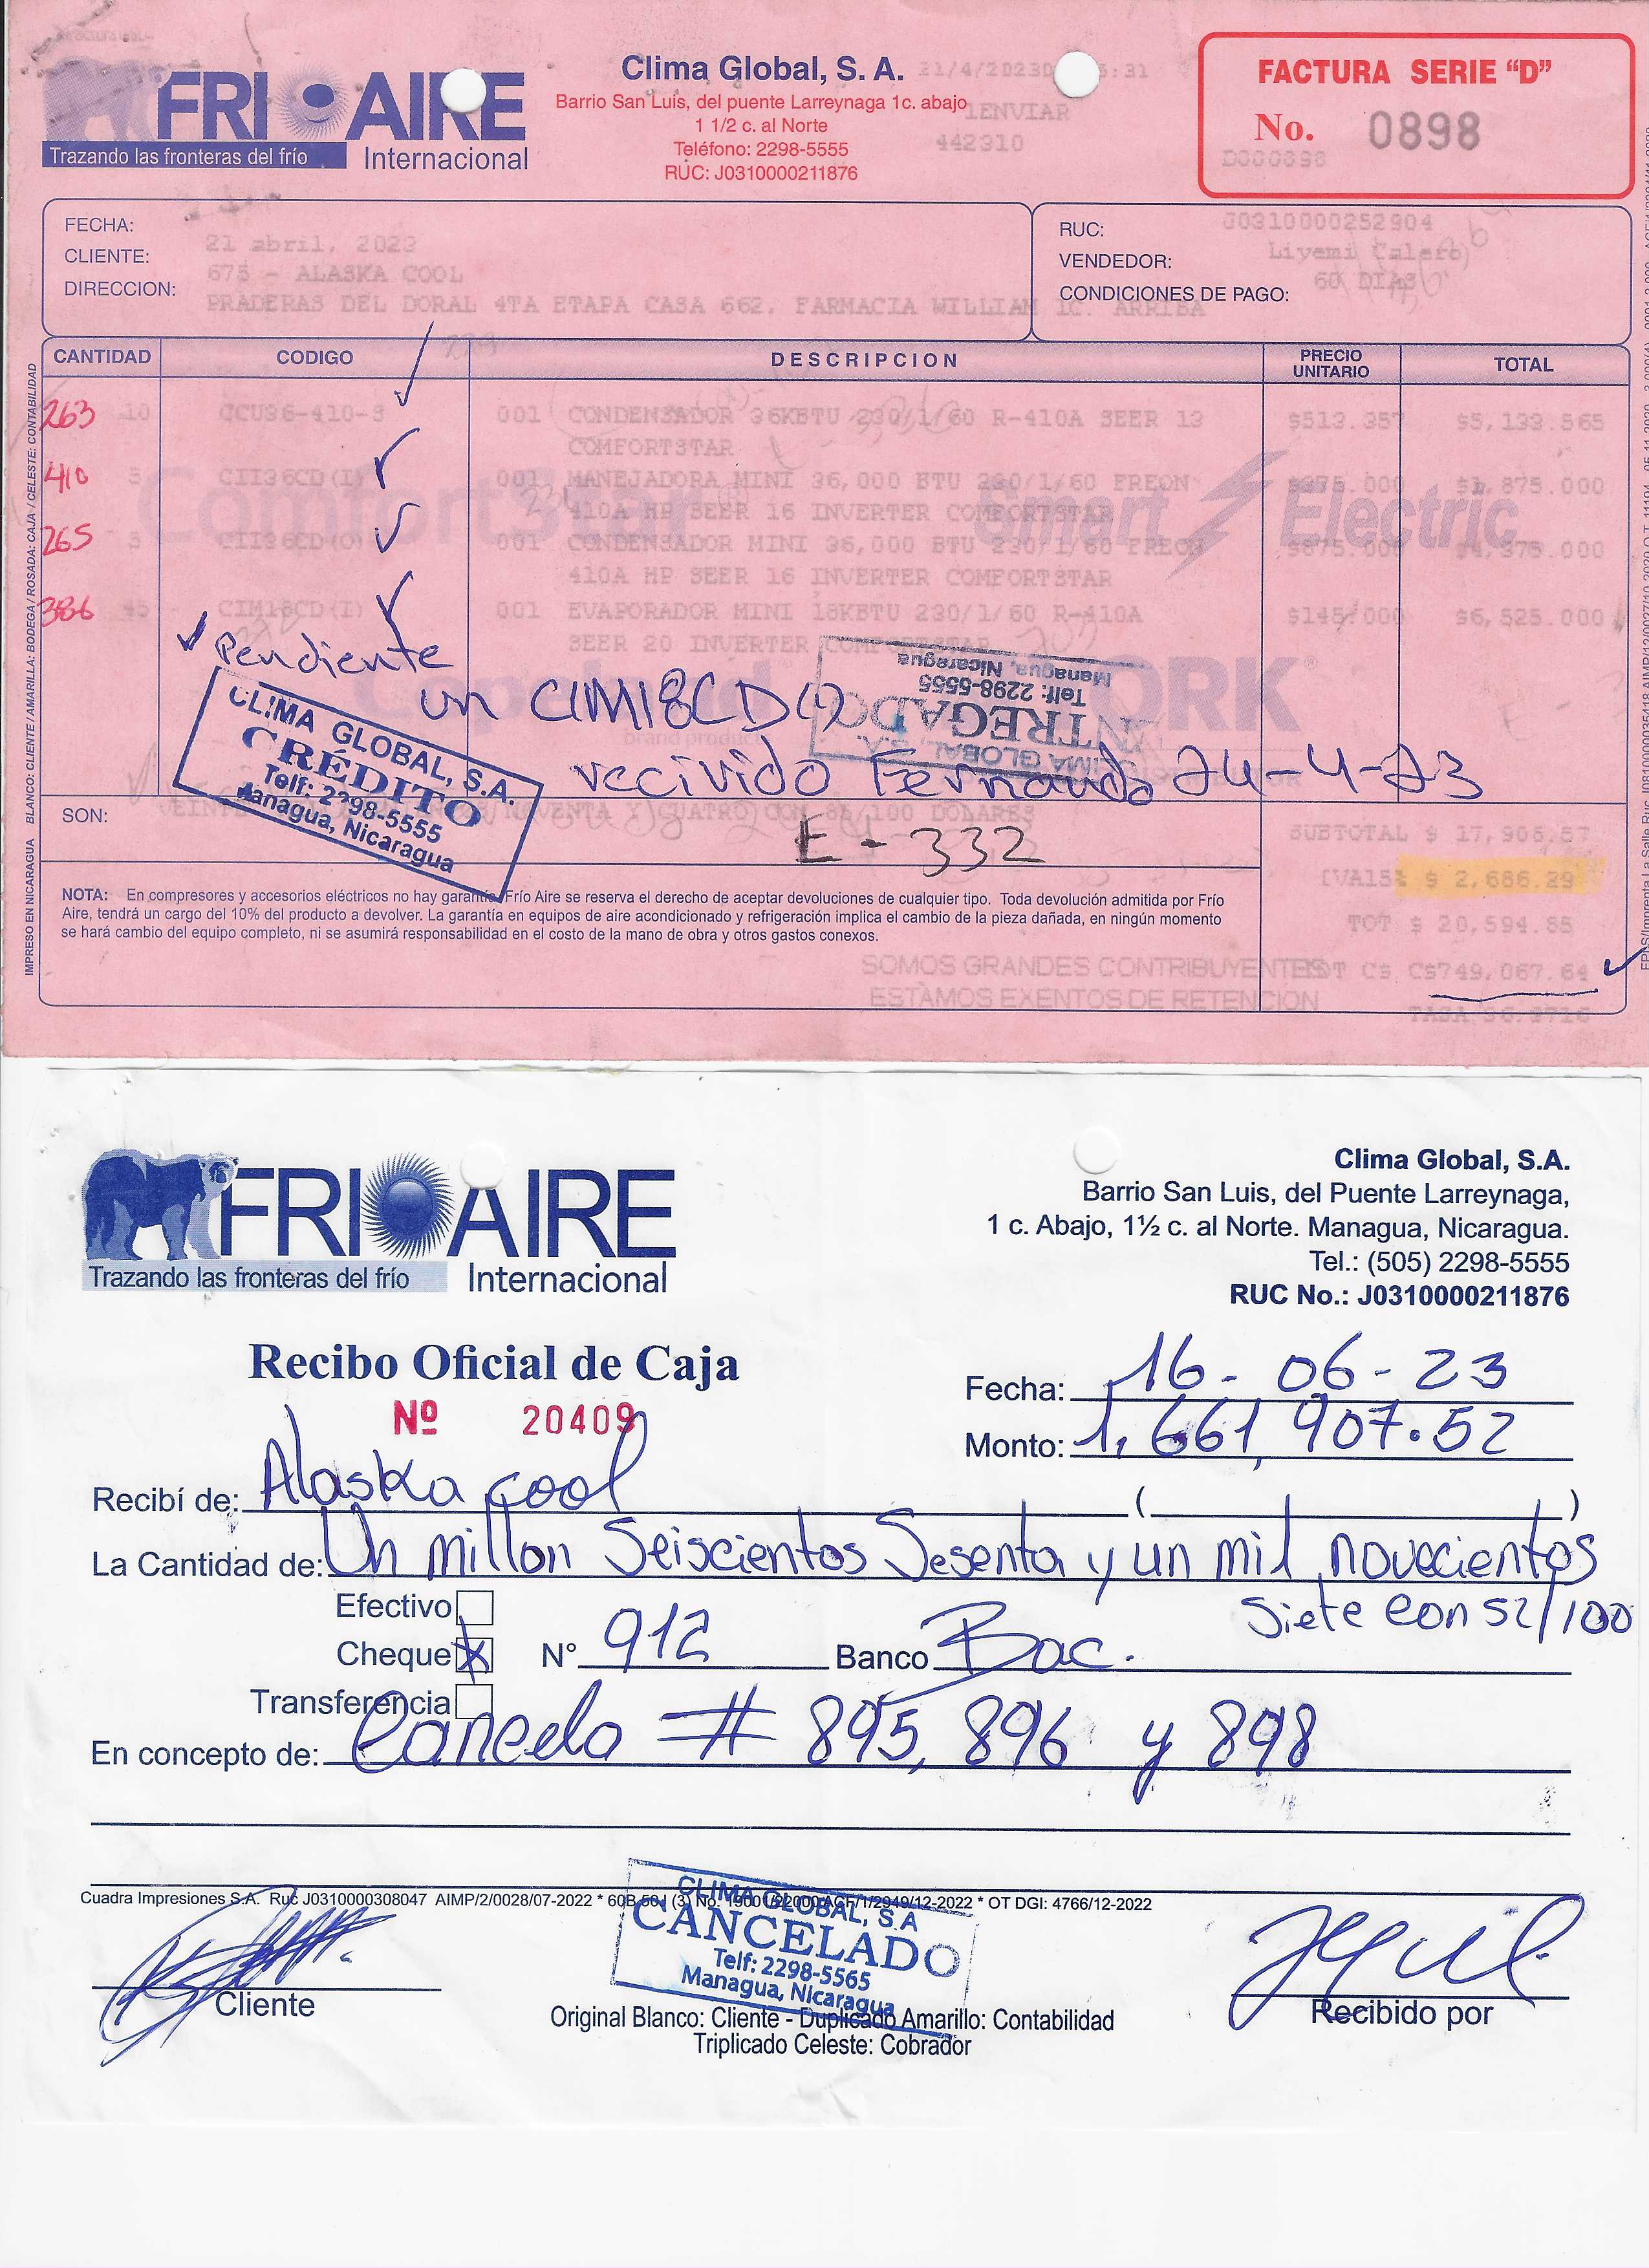 FRIOAIRE
Trazando las fronteras del frío
Internacional
Clima Global, S. A.
Barrio San Luis, del puente Larreynaga 1c. abajo
1 1/2 c. al Norte
Teléfono: 2298-5555
RUC: J0310000211876
21/4/2023
5:31
1ENVIAR
442310
FACTURA SERIE “D”
No. 0898
D000898
FECHA: 21 abril, 2023
CLIENTE: 675 - ALASKA COOL
DIRECCION: PRADERAS DEL DORAL 4TA ETAPA CASA 662, FARMACIA WILLIAM 1C. ARRIBA
RUC: J0310000252904
VENDEDOR: Liyemi Calero
CONDICIONES DE PAGO: 60 DIAS
CANTIDAD CODIGO DESCRIPCION PRECIO UNITARIO TOTAL
263 10 CCU36-410-3 001 CONDENSADOR 36KBTU 230/1/60 R-410A SEER 13 $513.357 $5,133.565
COMFORTSTAR
410 5 CII36CD(I) 001 MANEJADORA MINI 36,000 BTU 230/1/60 FREON $375.000 $1,875.000
410A HP SEER 16 INVERTER COMFORTSTAR
265 5 CII36CD(O) 001 CONDENSADOR MINI 36,000 BTU 230/1/60 FREON $875.000 $4,375.000
410A HP SEER 16 INVERTER COMFORTSTAR
386 45 CIM18CD(I) 001 EVAPORADOR MINI 18KBTU 230/1/60 R-410A $145.000 $6,525.000
SEER 20 INVERTER COMFORTSTAR
ComfortStar
Smart Electric
Copeland
brand products
YORK®
Pendiente
un CIM18CD(I)
recivido Fernando 24-4-23
CLIMA GLOBAL, S.A.
CRÉDITO
Telf: 2298-5555
Managua, Nicaragua
CLIMA GLOBAL, S.A.
ENTREGADO
Telf: 2298-5555
Managua, Nicaragua
SON:
CUATRO CON 85/100 DOLARES
E-332
SUBTOTAL $ 17,908.57
IVA15% $ 2,686.29
TOT $ 20,594.85
TOT C$ C$749,067.64
TASA 36.3716
NOTA: En compresores y accesorios eléctricos no hay garantía. Frío Aire se reserva el derecho de aceptar devoluciones de cualquier tipo. Toda devolución admitida por Frío
Aire, tendrá un cargo del 10% del producto a devolver. La garantía en equipos de aire acondicionado y refrigeración implica el cambio de la pieza dañada, en ningún momento
se hará cambio del equipo completo, ni se asumirá responsabilidad en el costo de la mano de obra y otros gastos conexos.
SOMOS GRANDES CONTRIBUYENTES
ESTAMOS EXENTOS DE RETENCION
IMPRESO EN NICARAGUA BLANCO: CLIENTE / AMARILLA: BODEGA / ROSADA: CAJA / CELESTE: CONTABILIDAD
FRIOAIRE
Trazando las fronteras del frío
Internacional
Clima Global, S.A.
Barrio San Luis, del Puente Larreynaga,
1 c. Abajo, 1½ c. al Norte. Managua, Nicaragua.
Tel.: (505) 2298-5555
RUC No.: J0310000211876
Recibo Oficial de Caja
Nº 20409
Fecha: 16-06-23
Monto: 1,661,907.52
Recibí de: Alaska cool ( )
La Cantidad de: Un millon Seiscientos Sesenta y un mil novecientos
Siete con 52/100
Efectivo
Cheque X N° 912 Banco Bac.
Transferencia
En concepto de: Cancela # 895, 896 y 898
Cuadra Impresiones S.A. Ruc J0310000308047 AIMP/2/0028/07-2022 * 60B 50J (3) No. 19001/22000 ACF/1/2949/12-2022 * OT DGI: 4766/12-2022
CLIMA GLOBAL, S.A
CANCELADO
Telf: 2298-5565
Managua, Nicaragua
Cliente
Recibido por
Original Blanco: Cliente - Duplicado Amarillo: Contabilidad
Triplicado Celeste: Cobrador